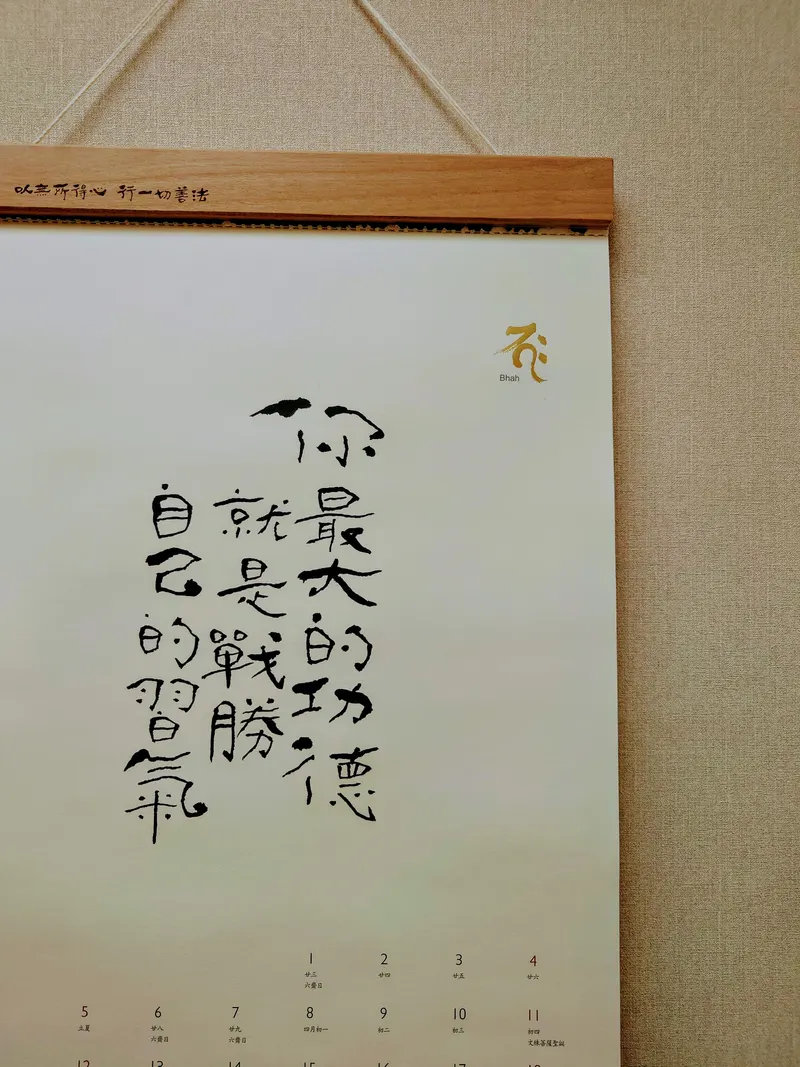 以無所得心 行一切善法
Bhah
你最大的功德
就是戰勝
自己的習氣
1 2 3 4
廿三 廿四 廿五 廿六
六齋日
5 6 7 8 9 10 11
立夏 廿八 廿九 四月初一 初二 初三 初四
六齋日 六齋日 文殊菩薩聖誕
12 13 14 15 16 17 18